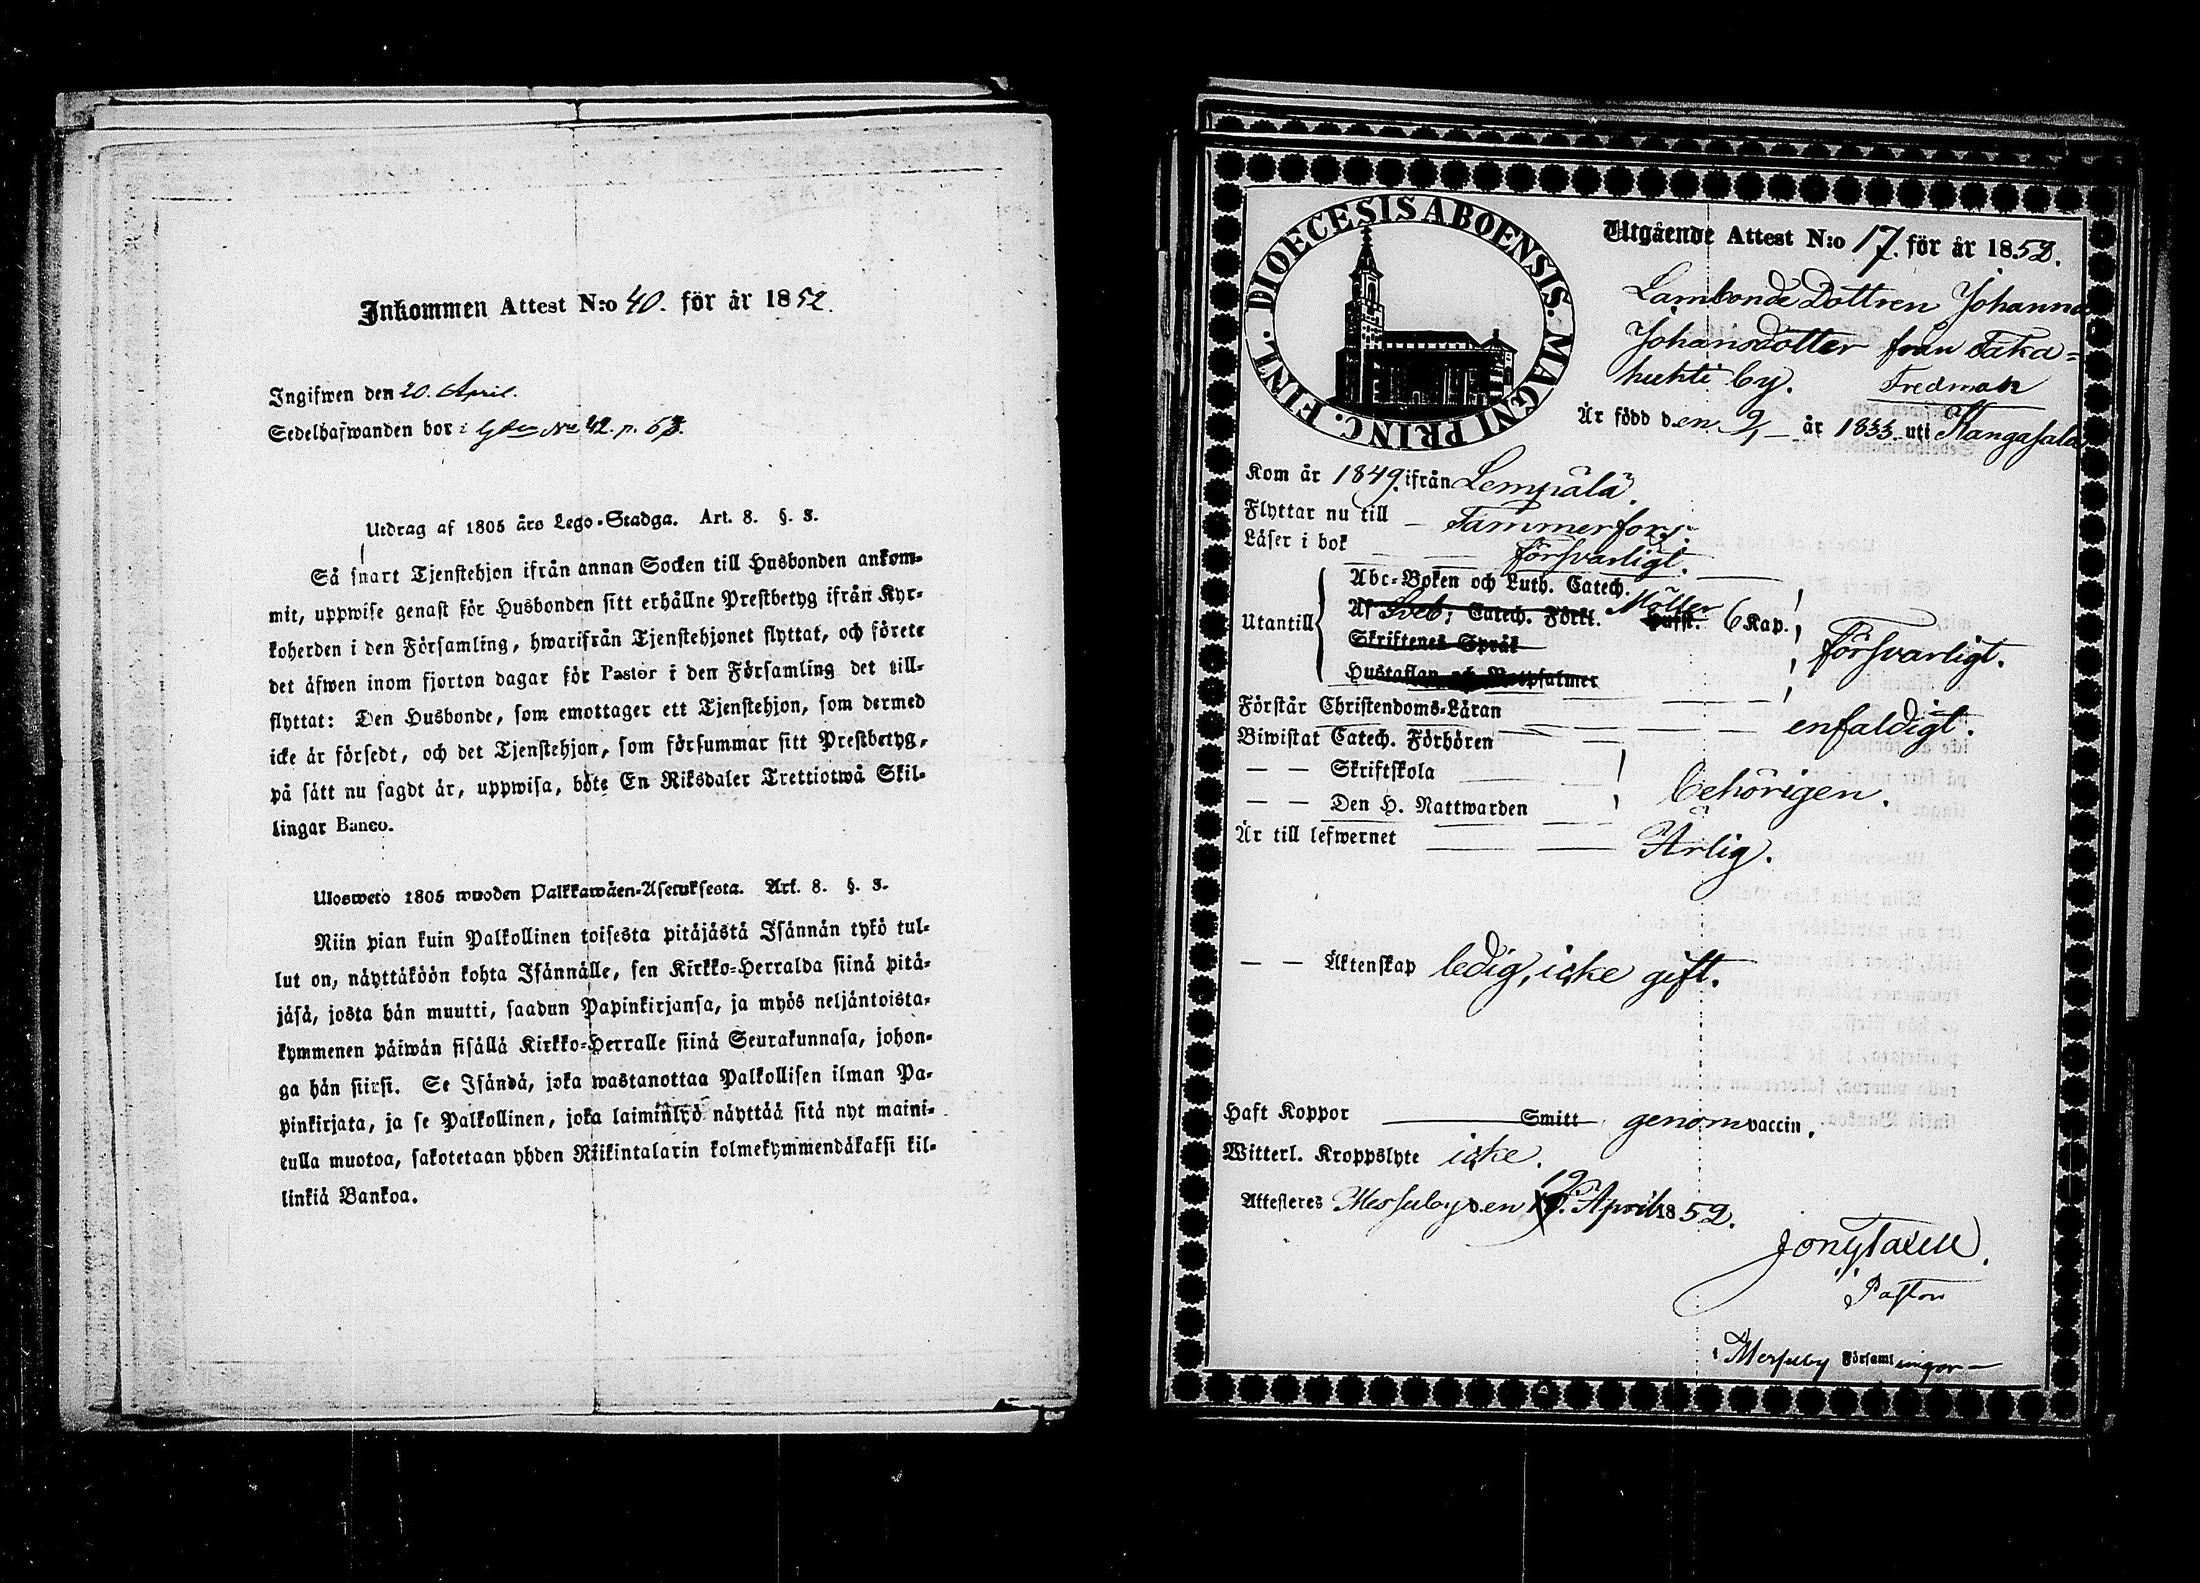 Inkommen Attest N:o 40. för år 1852.
Ingifwen den 20. April.
Sedelhafwanden bor i No 42. p. 53.
Utdrag af 1805 års Lego-Stadga. Art. 8. §. 3.
Så snart Tjenstehjon ifrån annan Socken till Husbonden ankom-
mit, uppwise genast för Husbonden sitt erhållne Prestbetyg ifrån Kyr-
koherden i den Församling, hwarifrån Tjenstehjonet flyttat, och förete
det äfwen inom fjorton dagar för Pastor i den Församling det till-
flyttat: Den Husbonde, som emottager ett Tjenstehjon, som dermed
icke är försedt, och det Tjenstehjon, som försummar sitt Prestbetyg,
på sätt nu sagdt är, uppwisa, böte En Riksdaler Trettiotwå Skil-
lingar Banco.
Ulosweto 1805 wuoden Palkkawäen-Asetuksesta. Art. 8. §. 3.
Niin pian kuin Palkollinen toisesta pitäjästä Isännän tykö tul-
lut on, näyttäköön kohta Isännälle, sen Kirkko-Herralda siinä pitä-
jäsä, josta hän muutti, saadun Papinkirjansa, ja myös neljäntoista-
kymmenen päiwän sisällä Kirkko-Herralle siinä Seurakunnasa, johon-
ga hän siirsi. Se Isändä, joka wastanottaa Palkollisen ilman Pa-
pinkirjata, ja se Palkollinen, joka laiminlyö näyttää sitä nyt maini-
tulla muotoa, sakotetaan yhden Riikintalarin kolmekymmendäkaksi kil-
linkiä Bankoa.
DIOECESIS ABOENSIS. MAGNI PRINC. FINL.
Utgående Attest N:o 17. för år 1852.
Lambonde Dottren Johanna
Johansdotter från Taka=
huhti by. Fredman
Är född den 9/1 år 1833. uti Kangasala
Kom år 1849. ifrån Lempälä.
Flyttar nu till Tammerfors.
Läser i bok försvarligt.
Abc-Boken och Luth. Catech.
Utantill Af Sveb: Catech. Förkl. Möller Hufst. 6 Kap. försvarligt.
Skriftenes Språk
Hustaflan och Botpsalmer
Förstår Christendoms-Läran enfaldigt.
Biwistat Catech. Förhören
— — Skriftskola behörigen.
— — Den H. Nattwarden
Är till lefwernet Ärlig.
— — Äktenskap ledig, icke gift.
Haft Koppor Smitt genom vaccin.
Witterl. Kroppslyte icke.
Attesteres Messuby den 19. April 1852.
Pastor
i Messuby Församlingar